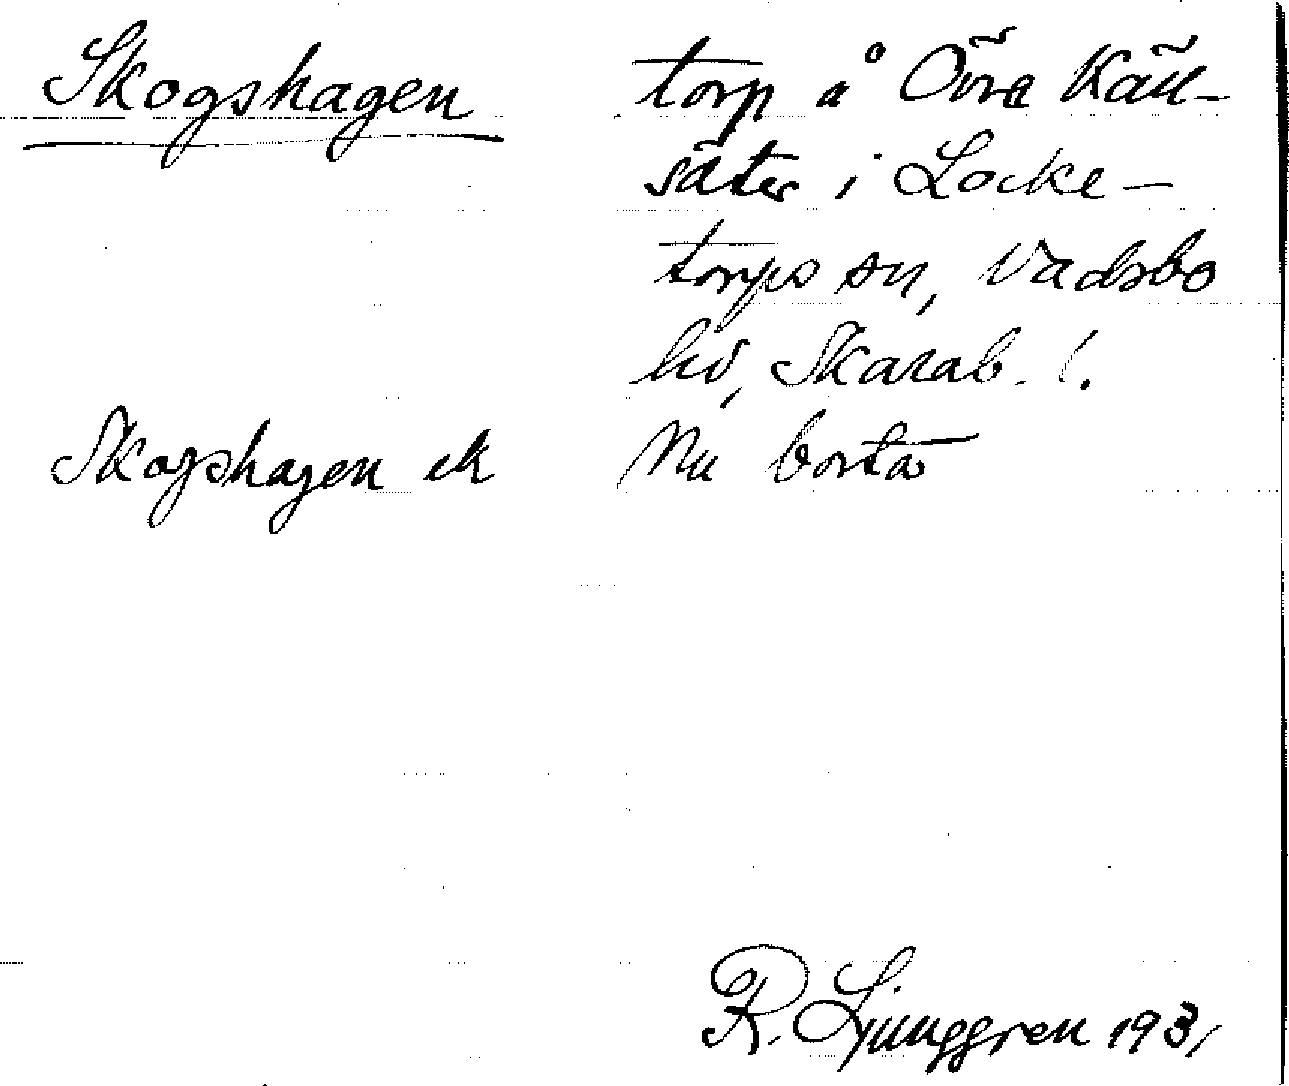 Skogshagen
torp å Övre Käll-
säter i Locke-
torps sn, Vadsbo
hd, Skarab. l.
Skogshagen ek
Nu borta
R. Ljunggren 1931